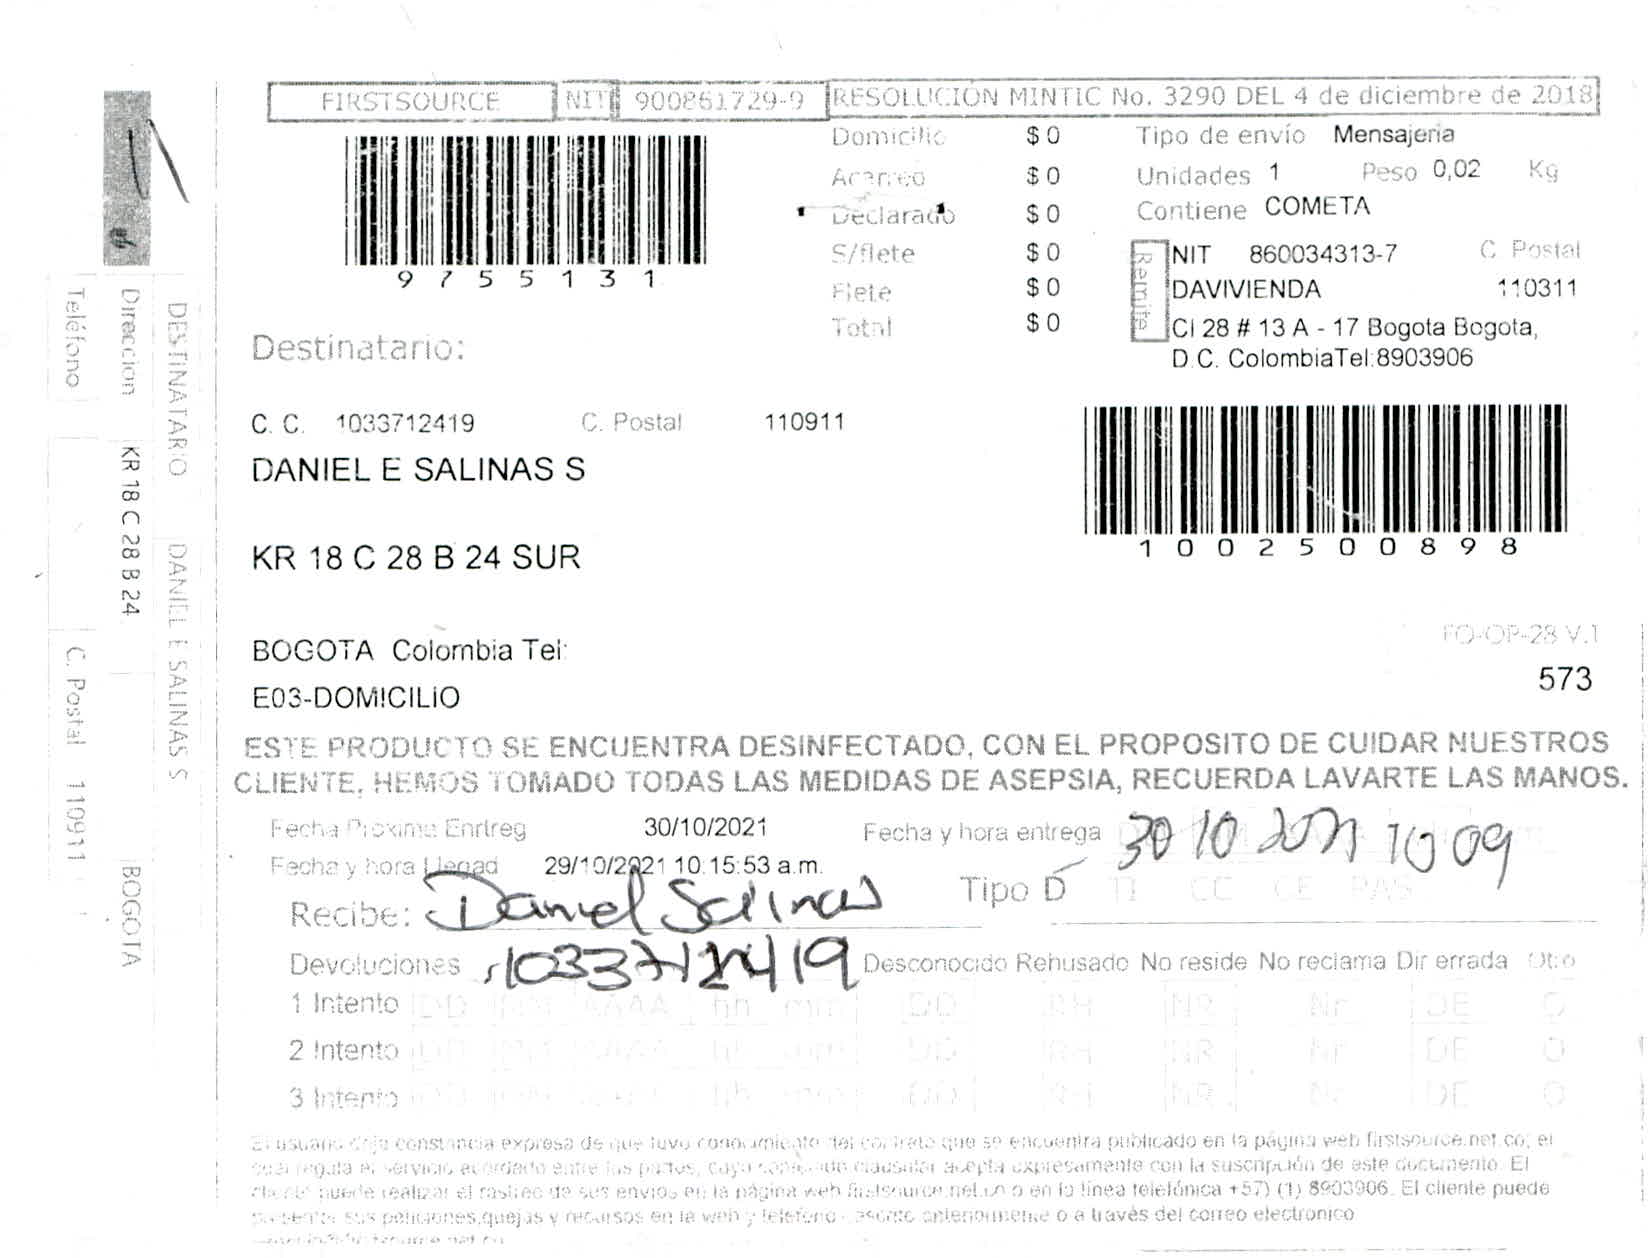 FIRSTSOURCE NIT 900861729-9 RESOLUCION MINTIC No. 3290 DEL 4 de diciembre de 2018
9755131
Domicilio $ 0
Acarreo $ 0
Declarado $ 0
S/flete $ 0
Flete $ 0
Total $ 0
Tipo de envío Mensajeria
Unidades 1 Peso 0,02 Kg
Contiene COMETA
Remite
NIT 860034313-7 C. Postal
DAVIVIENDA 110311
Cl 28 # 13 A - 17 Bogota Bogota,
D.C. ColombiaTel:8903906
1002500898
Destinatario:
C. C. 1033712419 C. Postal 110911
DANIEL E SALINAS S
KR 18 C 28 B 24 SUR
BOGOTA Colombia Tel:
E03-DOMICILIO
FO-OP-28 V.1
573
ESTE PRODUCTO SE ENCUENTRA DESINFECTADO, CON EL PROPOSITO DE CUIDAR NUESTROS
CLIENTE, HEMOS TOMADO TODAS LAS MEDIDAS DE ASEPSIA, RECUERDA LAVARTE LAS MANOS.
Fecha Proxima Enrtreg 30/10/2021 Fecha y hora entrega 30 10 2021 10 09
Fecha y hora Llegad 29/10/2021 10:15:53 a.m.
Recibe: Daniel Salinas Tipo D TI CC CE PAS
1033712419
Devoluciones Desconocido Rehusado No reside No reclama Dir errada Otro
1 Intento DD MM AAAA hh mm DO RH NR Nr DE O
2 Intento DD MM AAAA hh mm DO RH NR Nr DE O
3 Intento DD MM AAAA hh mm DO RH NR Nr DE O
El usuario deja constancia expresa de que tuvo conocimiento del contrato que se encuentra publicado en la página web firstsource.net.co; el
cual regula el servicio acordado entre las partes, cuyo contenido clausular acepta expresamente con la suscripción de este documento. El
cliente puede realizar el rastreo de sus envios en la página web firstsource.net.co o en la línea telefónica +57) (1) 8903906. El cliente puede
presentar sus peticiones,quejas y recursos en la web y telefono escrito anteriormente o a través del correo electronico
DESTINATARIO DANIEL E SALINAS S
Direccion KR 18 C 28 B 24 BOGOTA
Teléfono C. Postal 110911